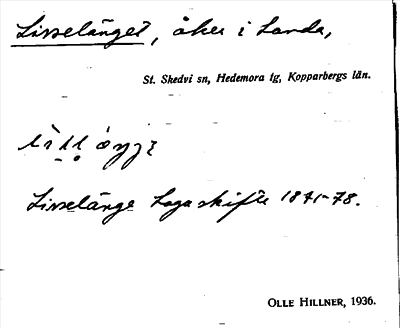 Lisselänget, åker i Landa,
St. Skedvi sn, Hedemora tg, Kopparbergs län.
Lisselänge Laga skifte 1871-78.
OLLE HILLNER, 1936.